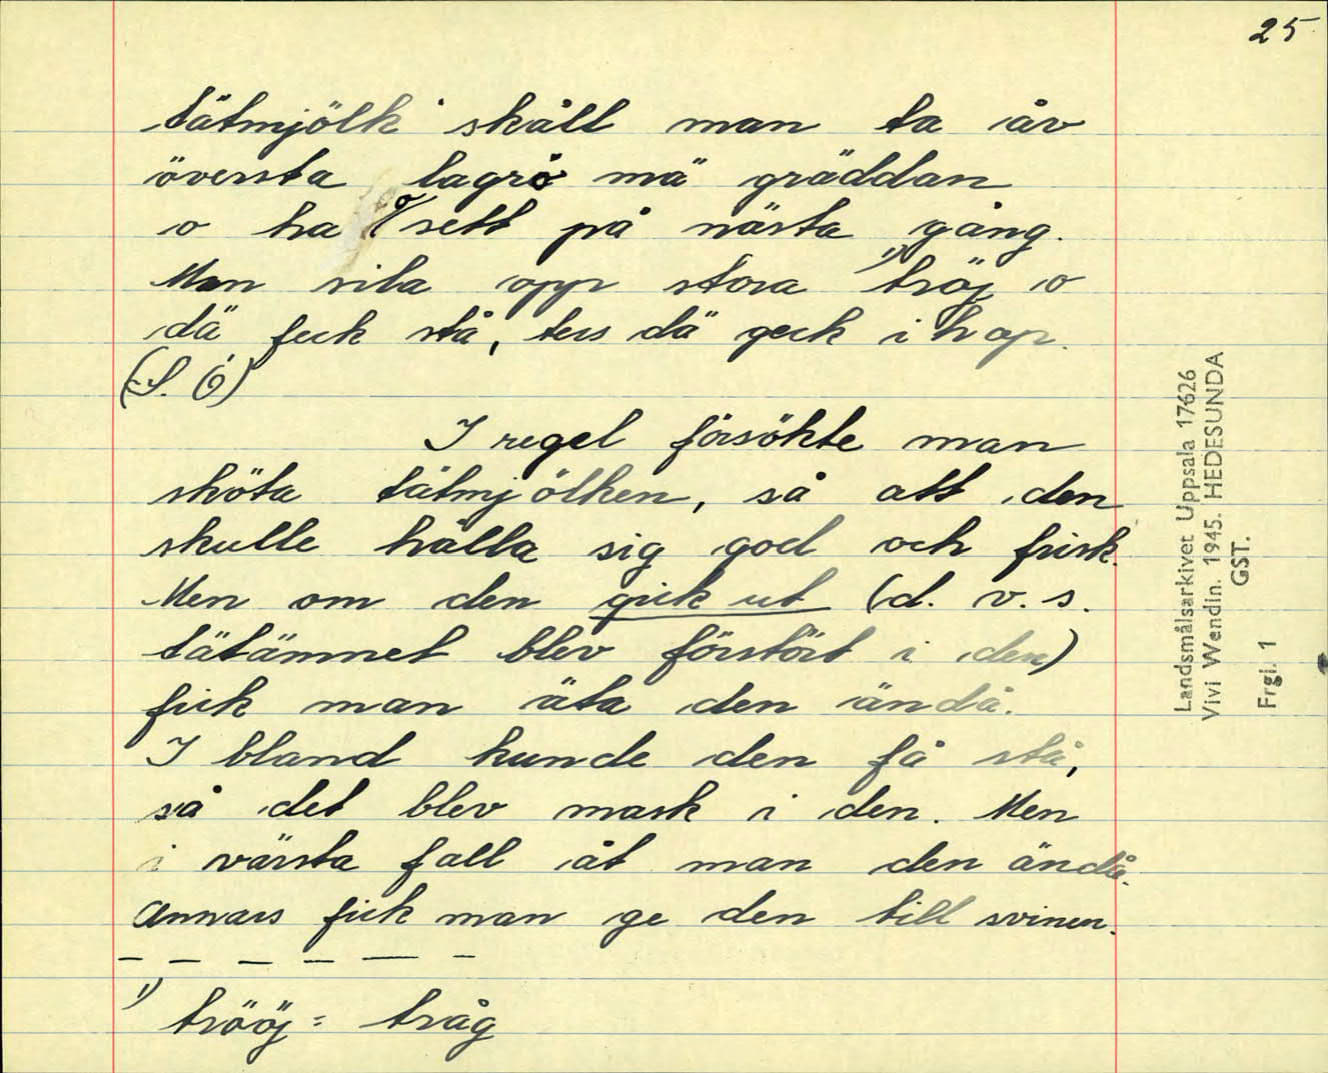 25
tätmjölk skåll man ta åv
översta lagrö mä gräddan
o ha o sett på nästa gång.
Men sila opp stora 1) tröj o
dä feck stå, tess dä geck i hop.
(S. Ö)
I regel försökte man
sköta tätmjölken, så att den
skulle hålla sig god och frisk.
Men om den gick ut (d. v. s.
tätämnet blev förstört i den)
fick man äta den ändå.
I bland kunde den få stå,
så det blev mask i den. Men
i värsta fall åt man den ändå.
Annars fick man ge den till svinen.
1) tröj = tråg
Landsmålsarkivet Uppsala 17626
Vivi Wendin. 1945. HEDESUNDA
GST.
Frgl. 1